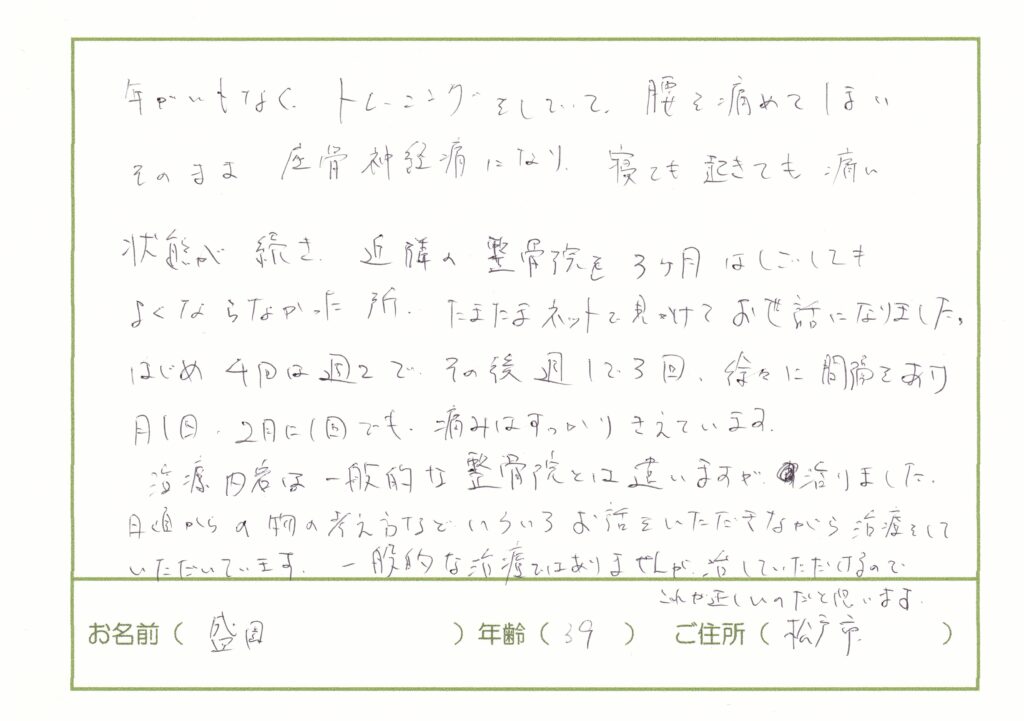 年がいもなく、トレーニングをしていて、腰を痛めてしまい
そのまま 座骨神経痛になり、寝ても起きても痛い
状態が続き、近隣の整骨院を3ヶ月はしごしても
よくならなかった所、たまたまネットで見つけてお世話になりました。
はじめ4回は週2で、その後週1で3回、徐々に間隔をあけ
月1回、2月に1回でも、痛みはすっかりきえています。
治療内容は一般的な整骨院とは違いますが、治りました。
普通からの物の考え方などいろいろお話をいただきながら治療をして
いただいています。一般的な治療ではありませんが、治していただけるので
これが正しいのだと思います。
お名前（ 盛田 ）年齢（ 39 ） ご住所（ 松戸市 ）